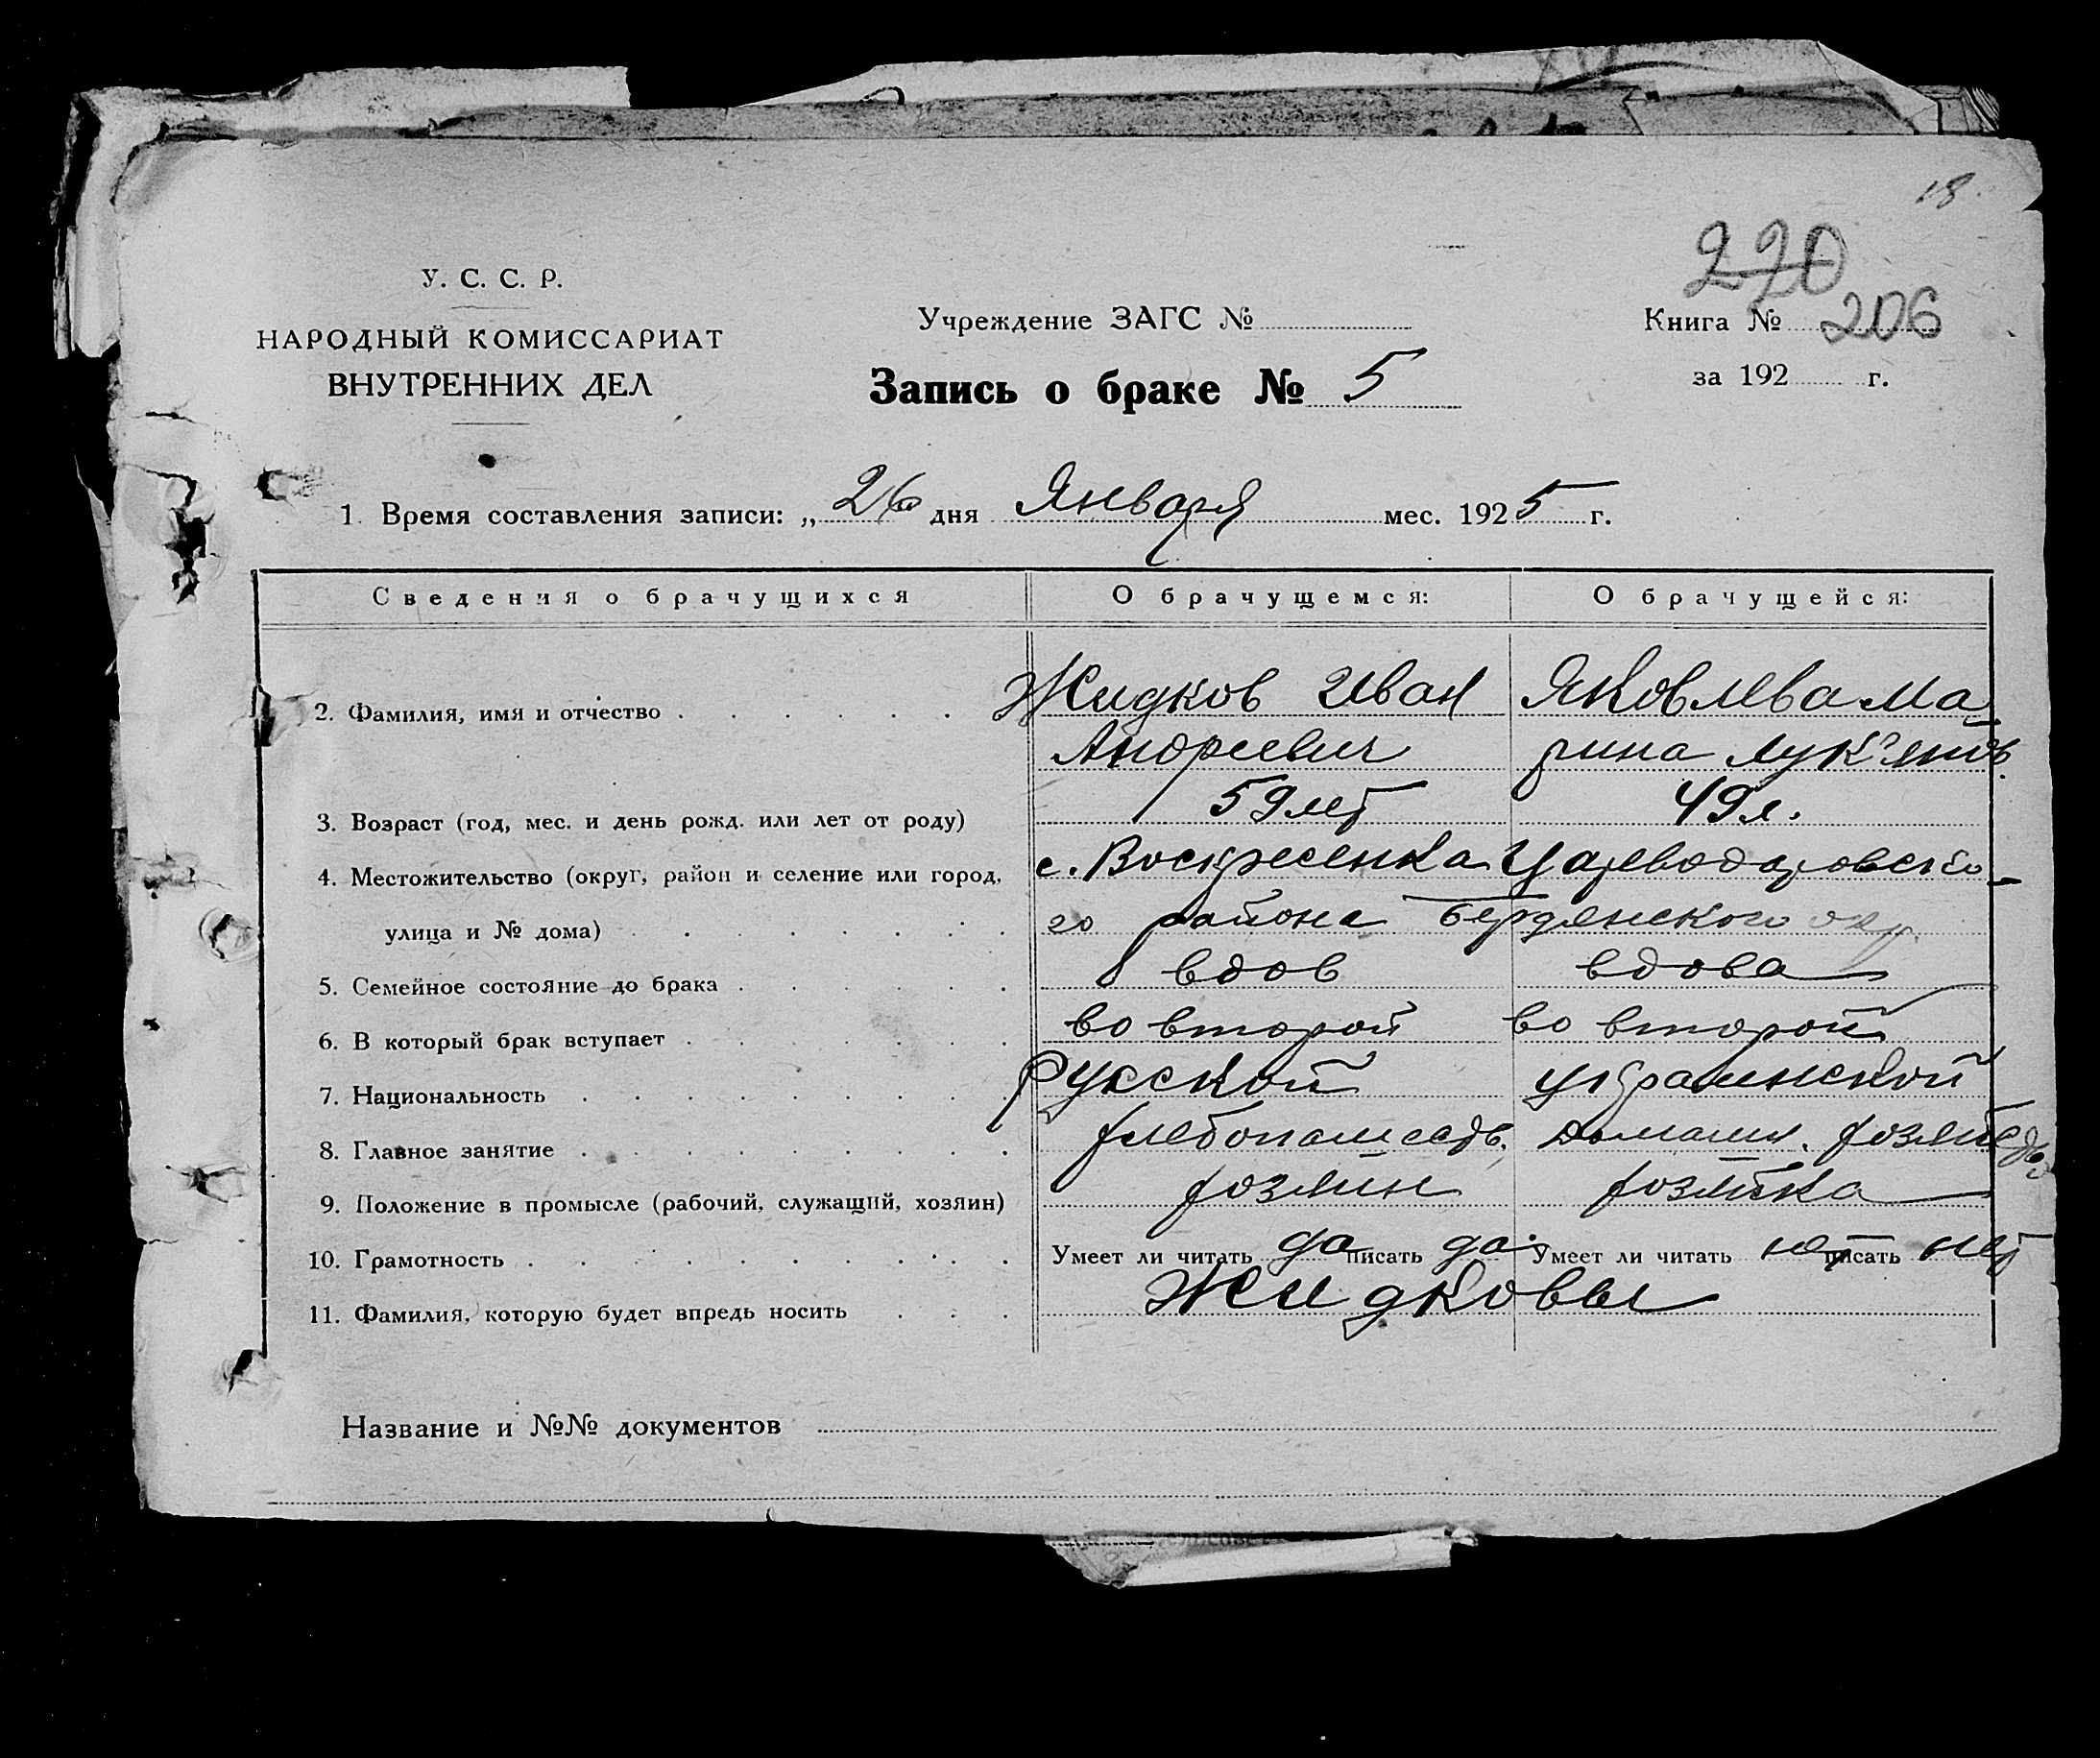 18.
220
У. С. С. Р.
НАРОДНЫЙ КОМИССАРИАТ
ВНУТРЕННИХ ДЕЛ
Учреждение ЗАГС №
Запись о браке № 5
Книга № 206
за 192 г.
1. Время составления записи: „ 26 дня Января мес. 1925 г.
Сведения о брачущихся О брачущемся: О брачущейся:
2. Фамилия, имя и отчество Жидков Иван Яковлева Ма-
Андреевич рина Лук'янов.
3. Возраст (год, мес. и день рожд. или лет от роду) 59 лет 49 л.
4. Местожительство (округ, район и селение или город, с. Воскресенка Цареводаровско-
улица и № дома) го района Бердянского окр.
5. Семейное состояние до брака вдов вдова
6. В который брак вступает во второй во второй
7. Национальность Русской украинской
8. Главное занятие хлебопашеств. домашн. хозяйство
9. Положение в промысле (рабочий, служащий, хозяин) хозяин хозяйка
10. Грамотность Умеет ли читать да писать да. Умеет ли читать нет писать нет
11. Фамилия, которую будет впредь носить Жидковы
Название и №№ документов